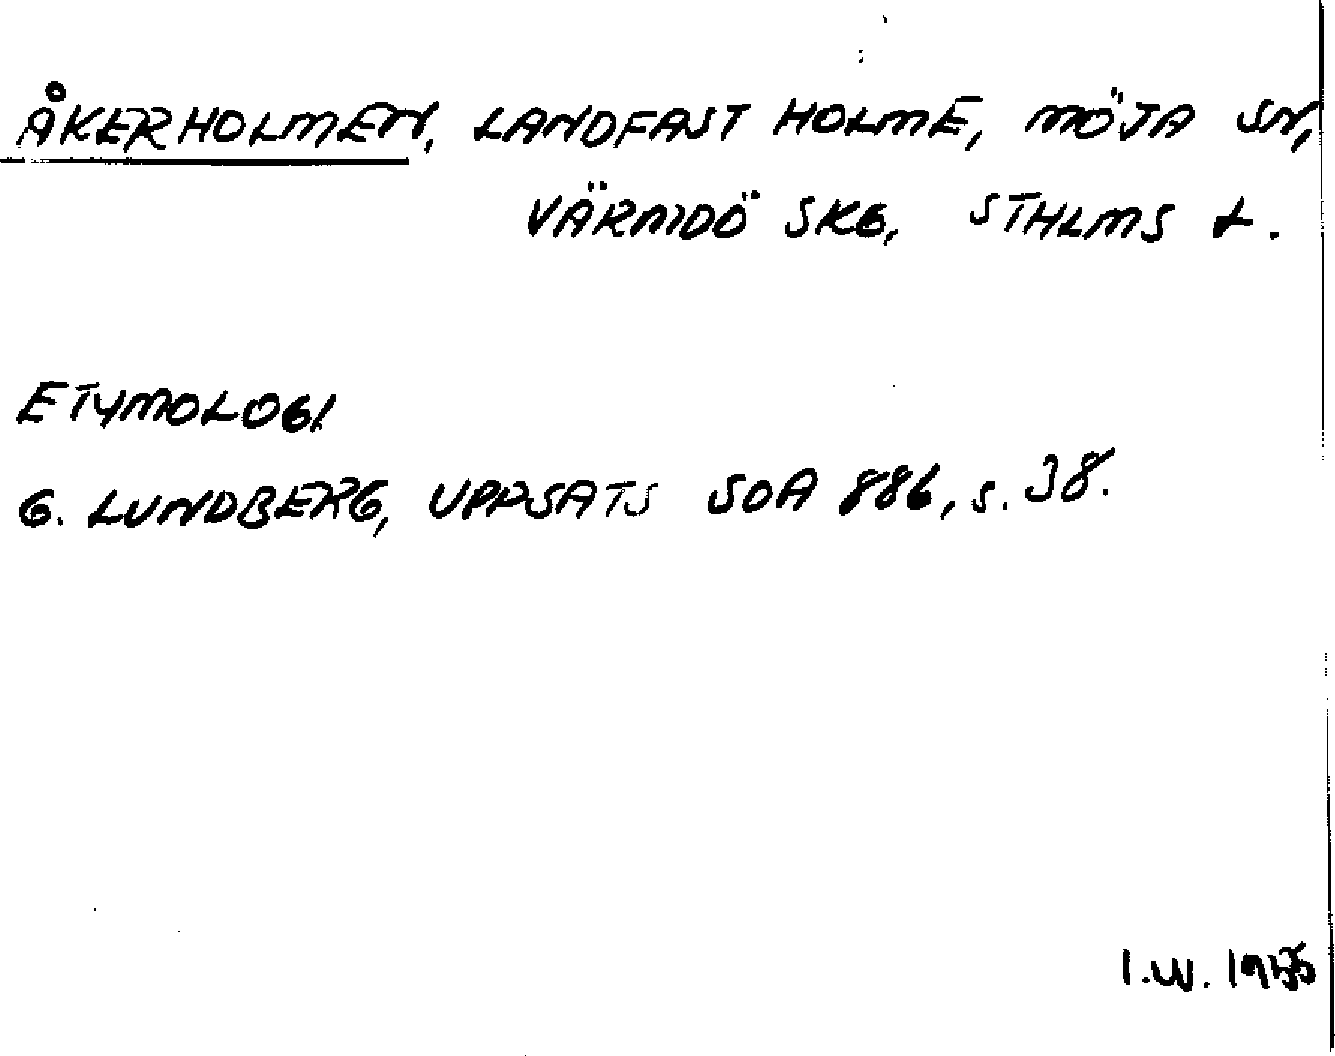 ÅKERHOLMEN, LANDFAST HOLME, MÖJA SN,
VÄRMDÖ SKG, STHLMS L.
ETYMOLOGI
G. LUNDBERG, UPPSATS SOA 886, s. 38.
I.W. 1955